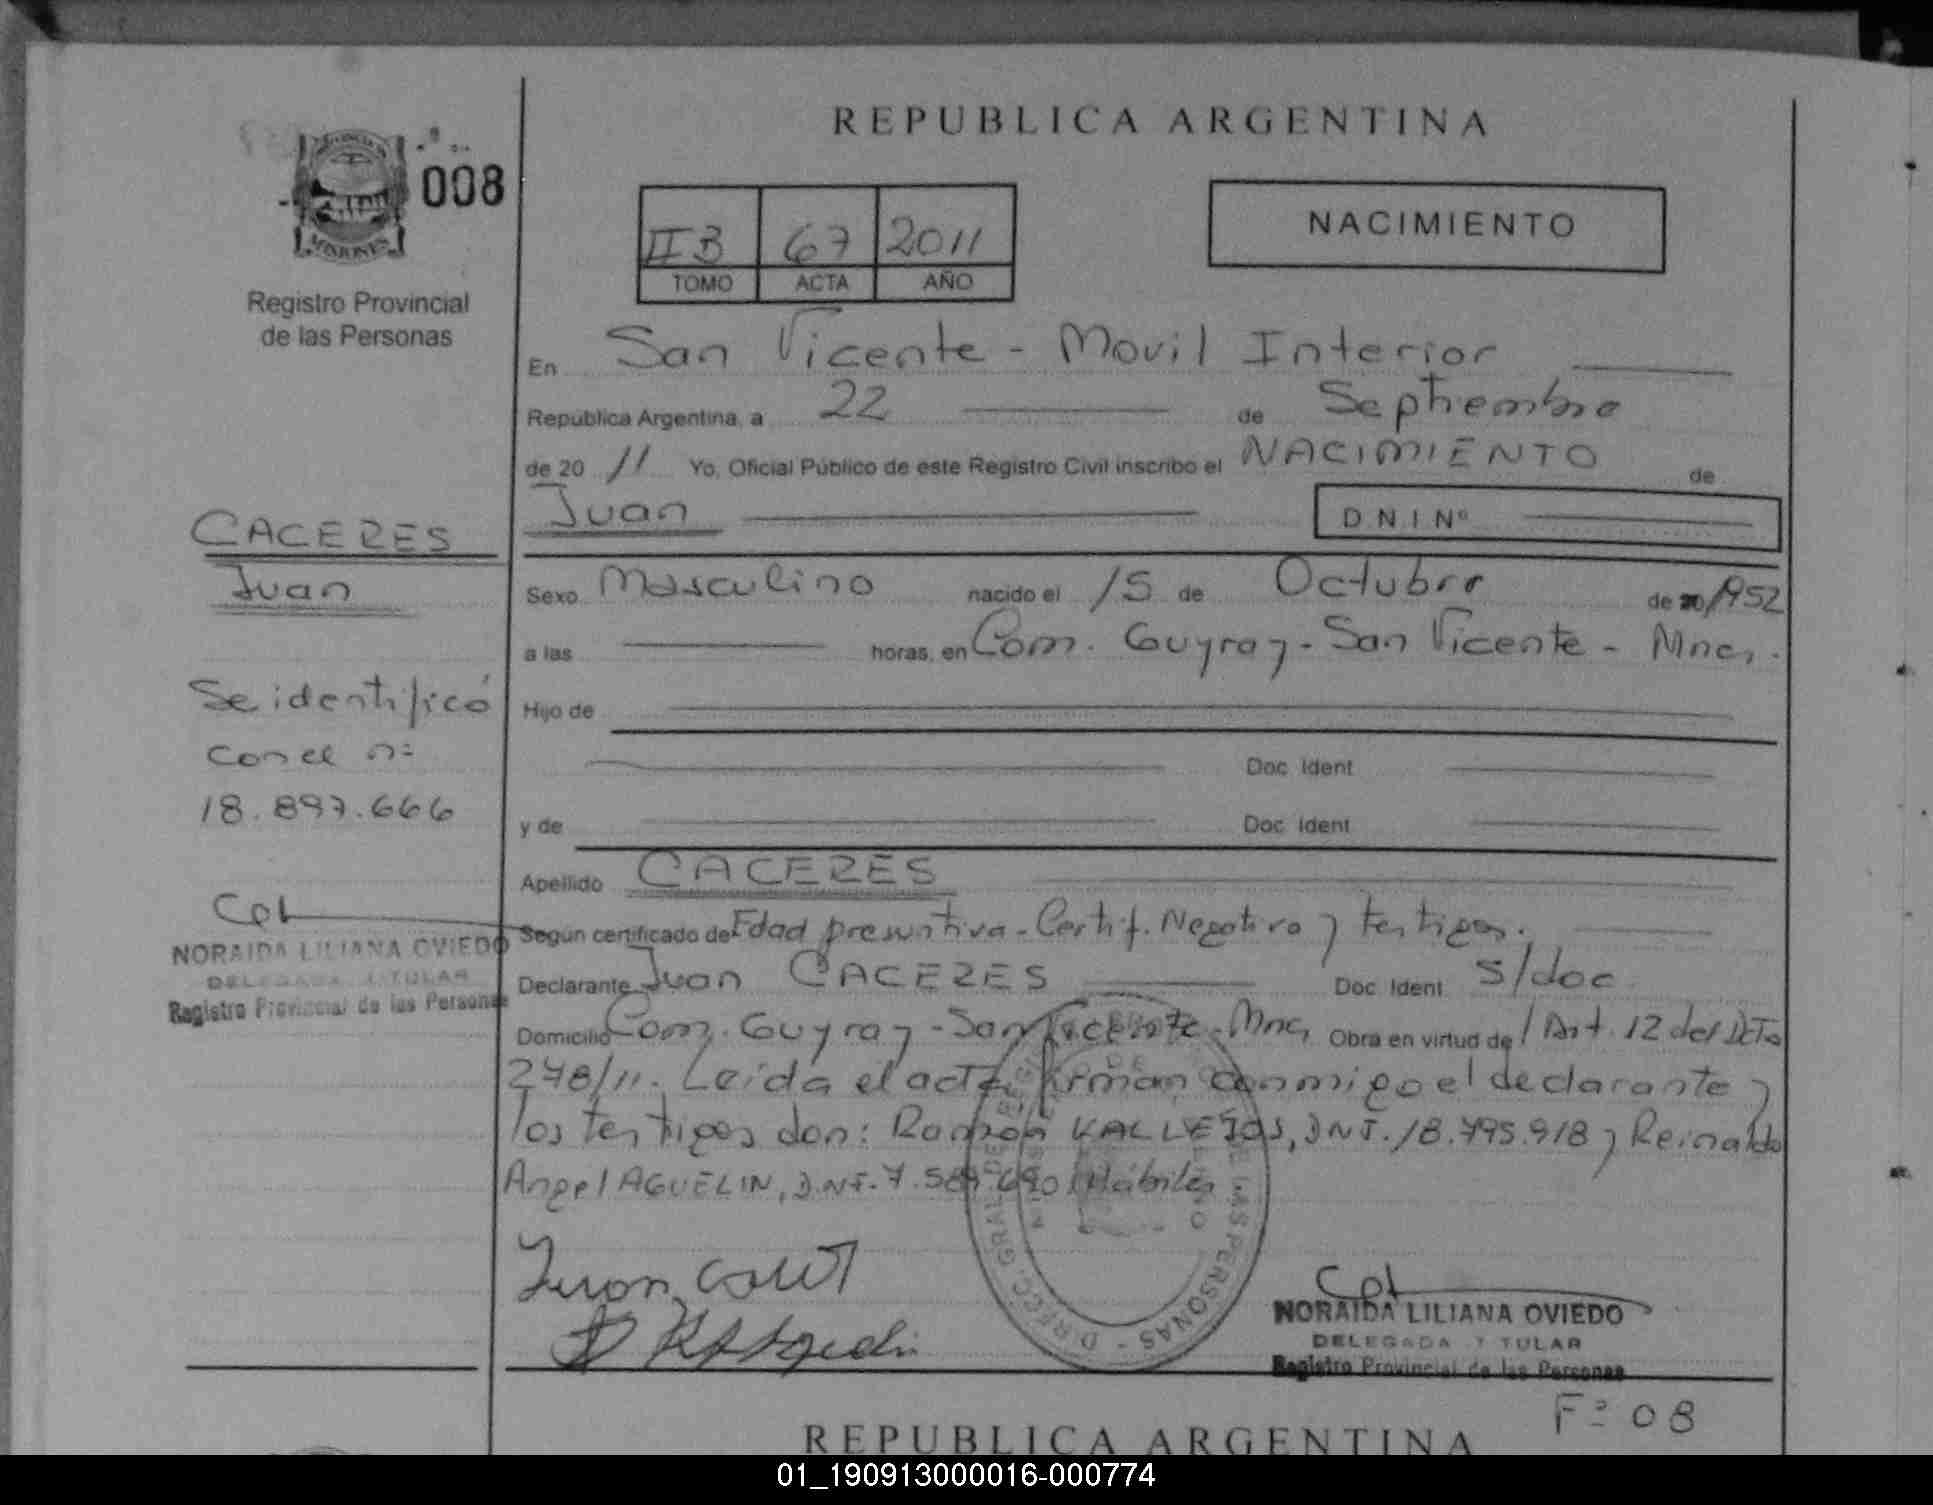 REPUBLICA ARGENTINA
008
MISIONES
Registro Provincial
de las Personas
II B 67 2011
TOMO ACTA AÑO
NACIMIENTO
En San Vicente - Movil Interior
República Argentina, a 22 de Septiembre
de 20 11 Yo, Oficial Público de este Registro Civil inscribo el NACIMIENTO de
Juan D.N.I Nº
CACERES
Juan
Se identificó
con el nº
18.897.666
Cpl
NORAIDA LILIANA OVIEDO
DELEGADA TITULAR
Registro Provincial de las Personas
Sexo Masculino nacido el 15 de Octubre de 20 1952
a las horas, en Com. Guyray - San Vicente - Mnes.
Hijo de
Doc. Ident
y de Doc. Ident
Apellido CACERES
Según certificado de Edad presuntiva - Certif. Negativo y testigos.
Declarante Juan CACERES Doc. Ident s/doc.
Domicilio Com. Guyray - San Vicente - Mnes Obra en virtud del Art. 12 del DCTo
278/11. Leída el acta firman conmigo el declarante y
los testigos don: Ramón VALLEJOS, DNI. 18.795.918 y Reinaldo
Angel AGUELIN, D.N.I. 7. Hábiles
DIRECC. GRAL. DE REG. DE LAS PERSONAS
Juan
Cpl
NORAIDA LILIANA OVIEDO
DELEGADA TITULAR
Registro Provincial de las Personas
Fº 08
REPUBLICA ARGENTINA
01_190913000016-000774